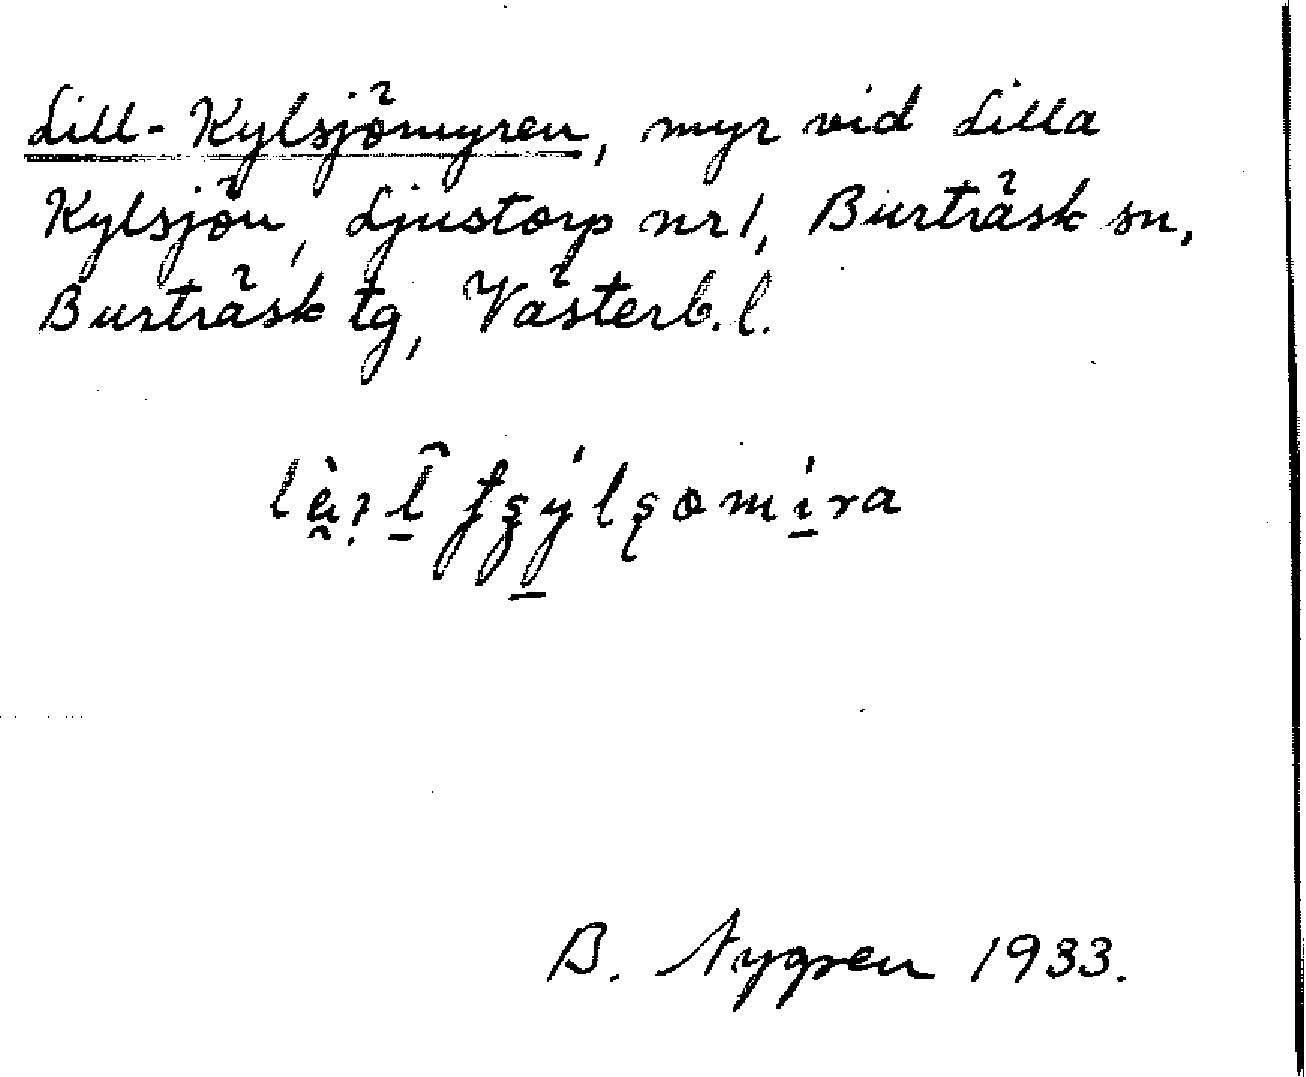 Lill-Kylsjömyren, myr vid Lilla
Kylsjön, Ljustorp nr 1, Burträsk sn,
Burträsk tg, Västerb. l.
B. Nygren 1933.